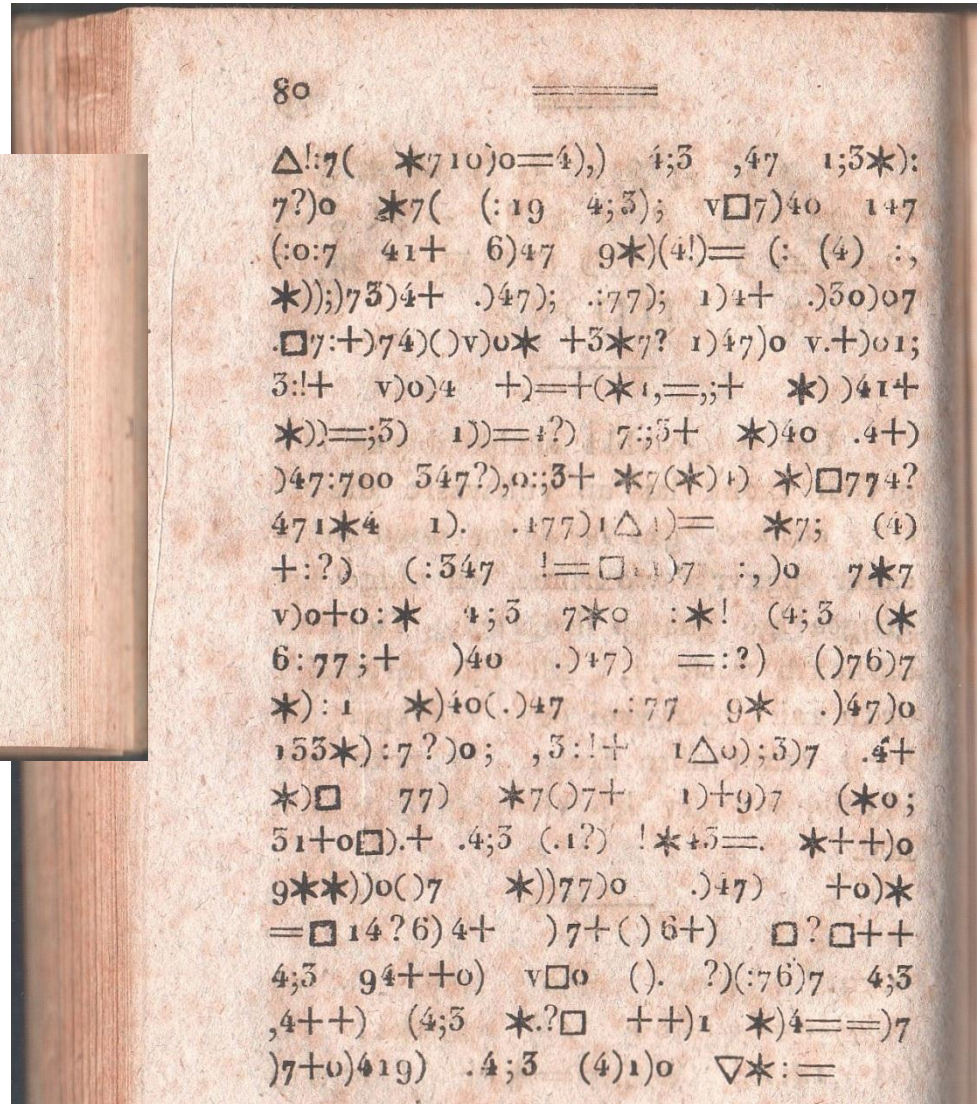 80
△!:7( ✶710)0=4),) 4;3 ,47 1;3✶):
7?)0 ✶7( (:19 4;3); v□7)40 147
(:0:7 41+ 6)47 9✶)(4!)= (: (4) :,
✶));)73)4+ .)47); .:77); 1)4+ .)30)07
.□7:+)74)()v)0✶ +3✶7? 1)47)0 v.+)01;
3:!+ v)0)4 +)=+(✶1,=,;+ ✶) )41+
✶))=;3) 1))=4?) 7:;3+ ✶)40 .4+)
)47:700 347?),0:;3+ ✶7(✶)4) ✶)□774?
471✶4 1). .477)1△1)= ✶7; (4)
+:?) (:347 !=□11)7 :,)0 7✶7
v)0+0:✶ 4;3 7✶0 :✶! (4;3 (✶
6:77;+ )40 .)47) =:?) ()76)7
✶):1 ✶)40(.)47 .:77 9✶ .)47)0
133✶):7?)0; ,3:!+ 1△0);3)7 .4+
✶)□ 77) ✶7()7+ 1)+9)7 (✶0;
31+0□).+ .4;3 (.1?) !✶43=. ✶++)0
9✶✶))0()7 ✶))77)0 .)47) +0)✶
=□14?6)4+ )7+()6+) □?□++
4;3 94++0) v□0 (). ?)(:76)7 4;3
,4++) (4;3 ✶.?□ ++)1 ✶)4==)7
)7+0)419) .4;3 (4)1)0 ▽✶:=